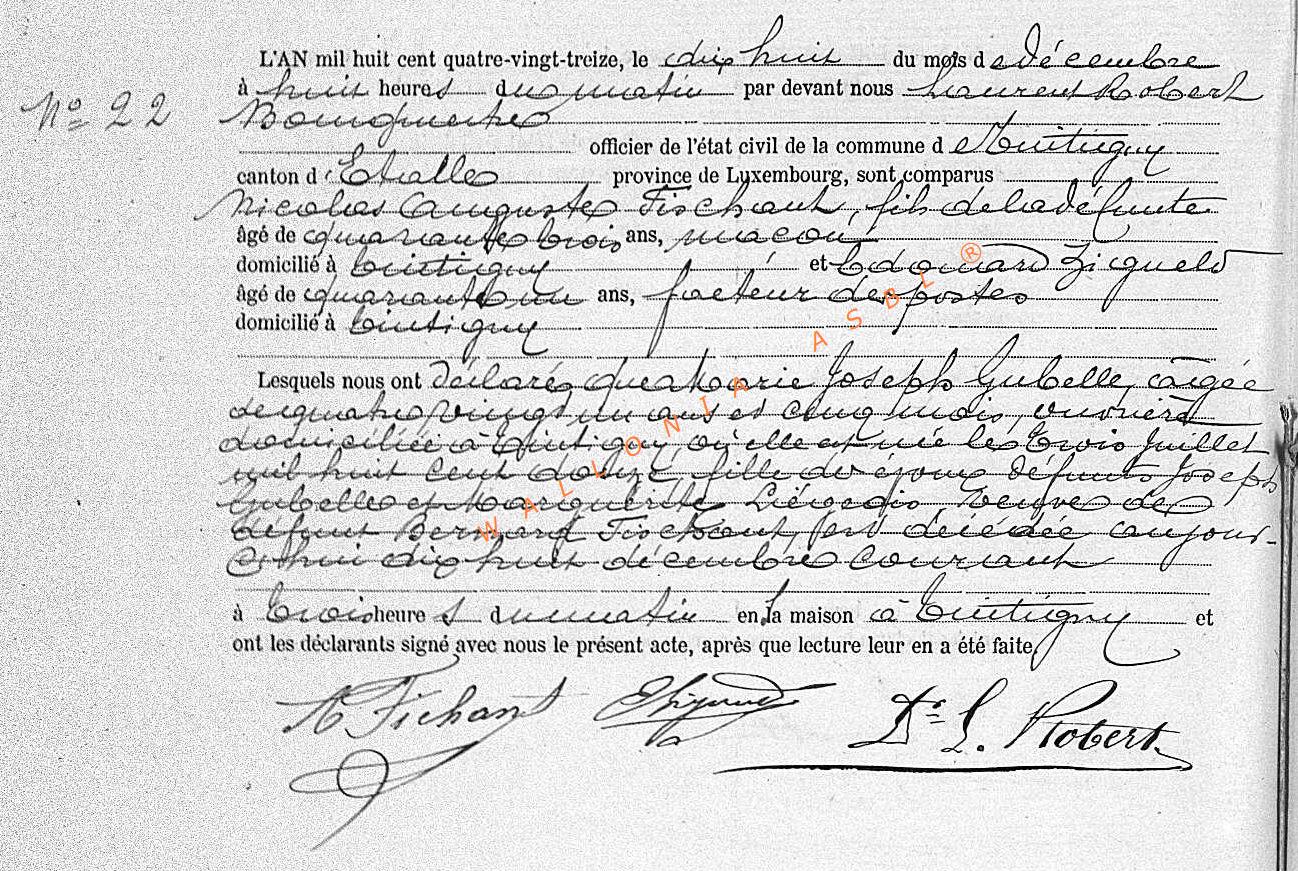 L'AN mil huit cent quatre-vingt-treize, le dix huit du mois de décembre
à huit heures du matin par devant nous Laurent Robert
N° 22
Bourgmestre
officier de l'état civil de la commune de Tintigny
canton d'Etalle province de Luxembourg, sont comparus
Nicolas Auguste Fischant, fils de la défunte
âgé de quarante trois ans, maçon
domicilié à Tintigny et Edouard
âgé de quarante un ans, facteur des postes
domicilié à Tintigny
Lesquels nous ont déclaré que Marie Joseph Gubelle, âgée
de quatre vingt un ans et cinq mois, ouvrière
domiciliée à Tintigny, où elle est née le trois Juillet
mil huit cent douze, fille des époux défunts Joseph
Gubelle et Marguerite Liégeois, veuve de
défunt Bernard Fischant, est décédée aujour-
d'hui dix huit décembre courant
à trois heures du matin en la maison à Tintigny et
ont les déclarants signé avec nous le présent acte, après que lecture leur en a été faite
A Fichant Dr L. Robert
WALLONIA ASBL ®